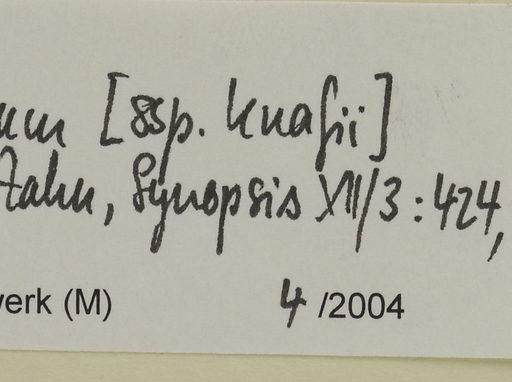 um [ssp. knafii]
Zahn, Synopsis XII/3 : 424,
werk (M) 4 /2004